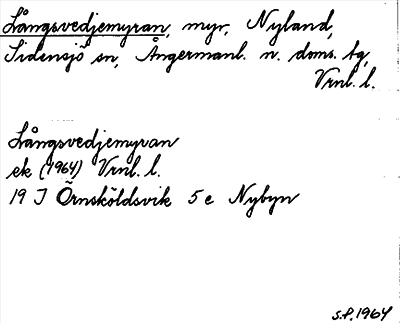 Långsvedjemyran, myr, Nyland,
Sidensjö sn, Ångermanl. n. doms. tg,
Vrnl. l.
Långsvedjemyran
ek (1964) Vrnl. l.
19 J Örnsköldsvik 5 e Nybyn
S.P. 1964